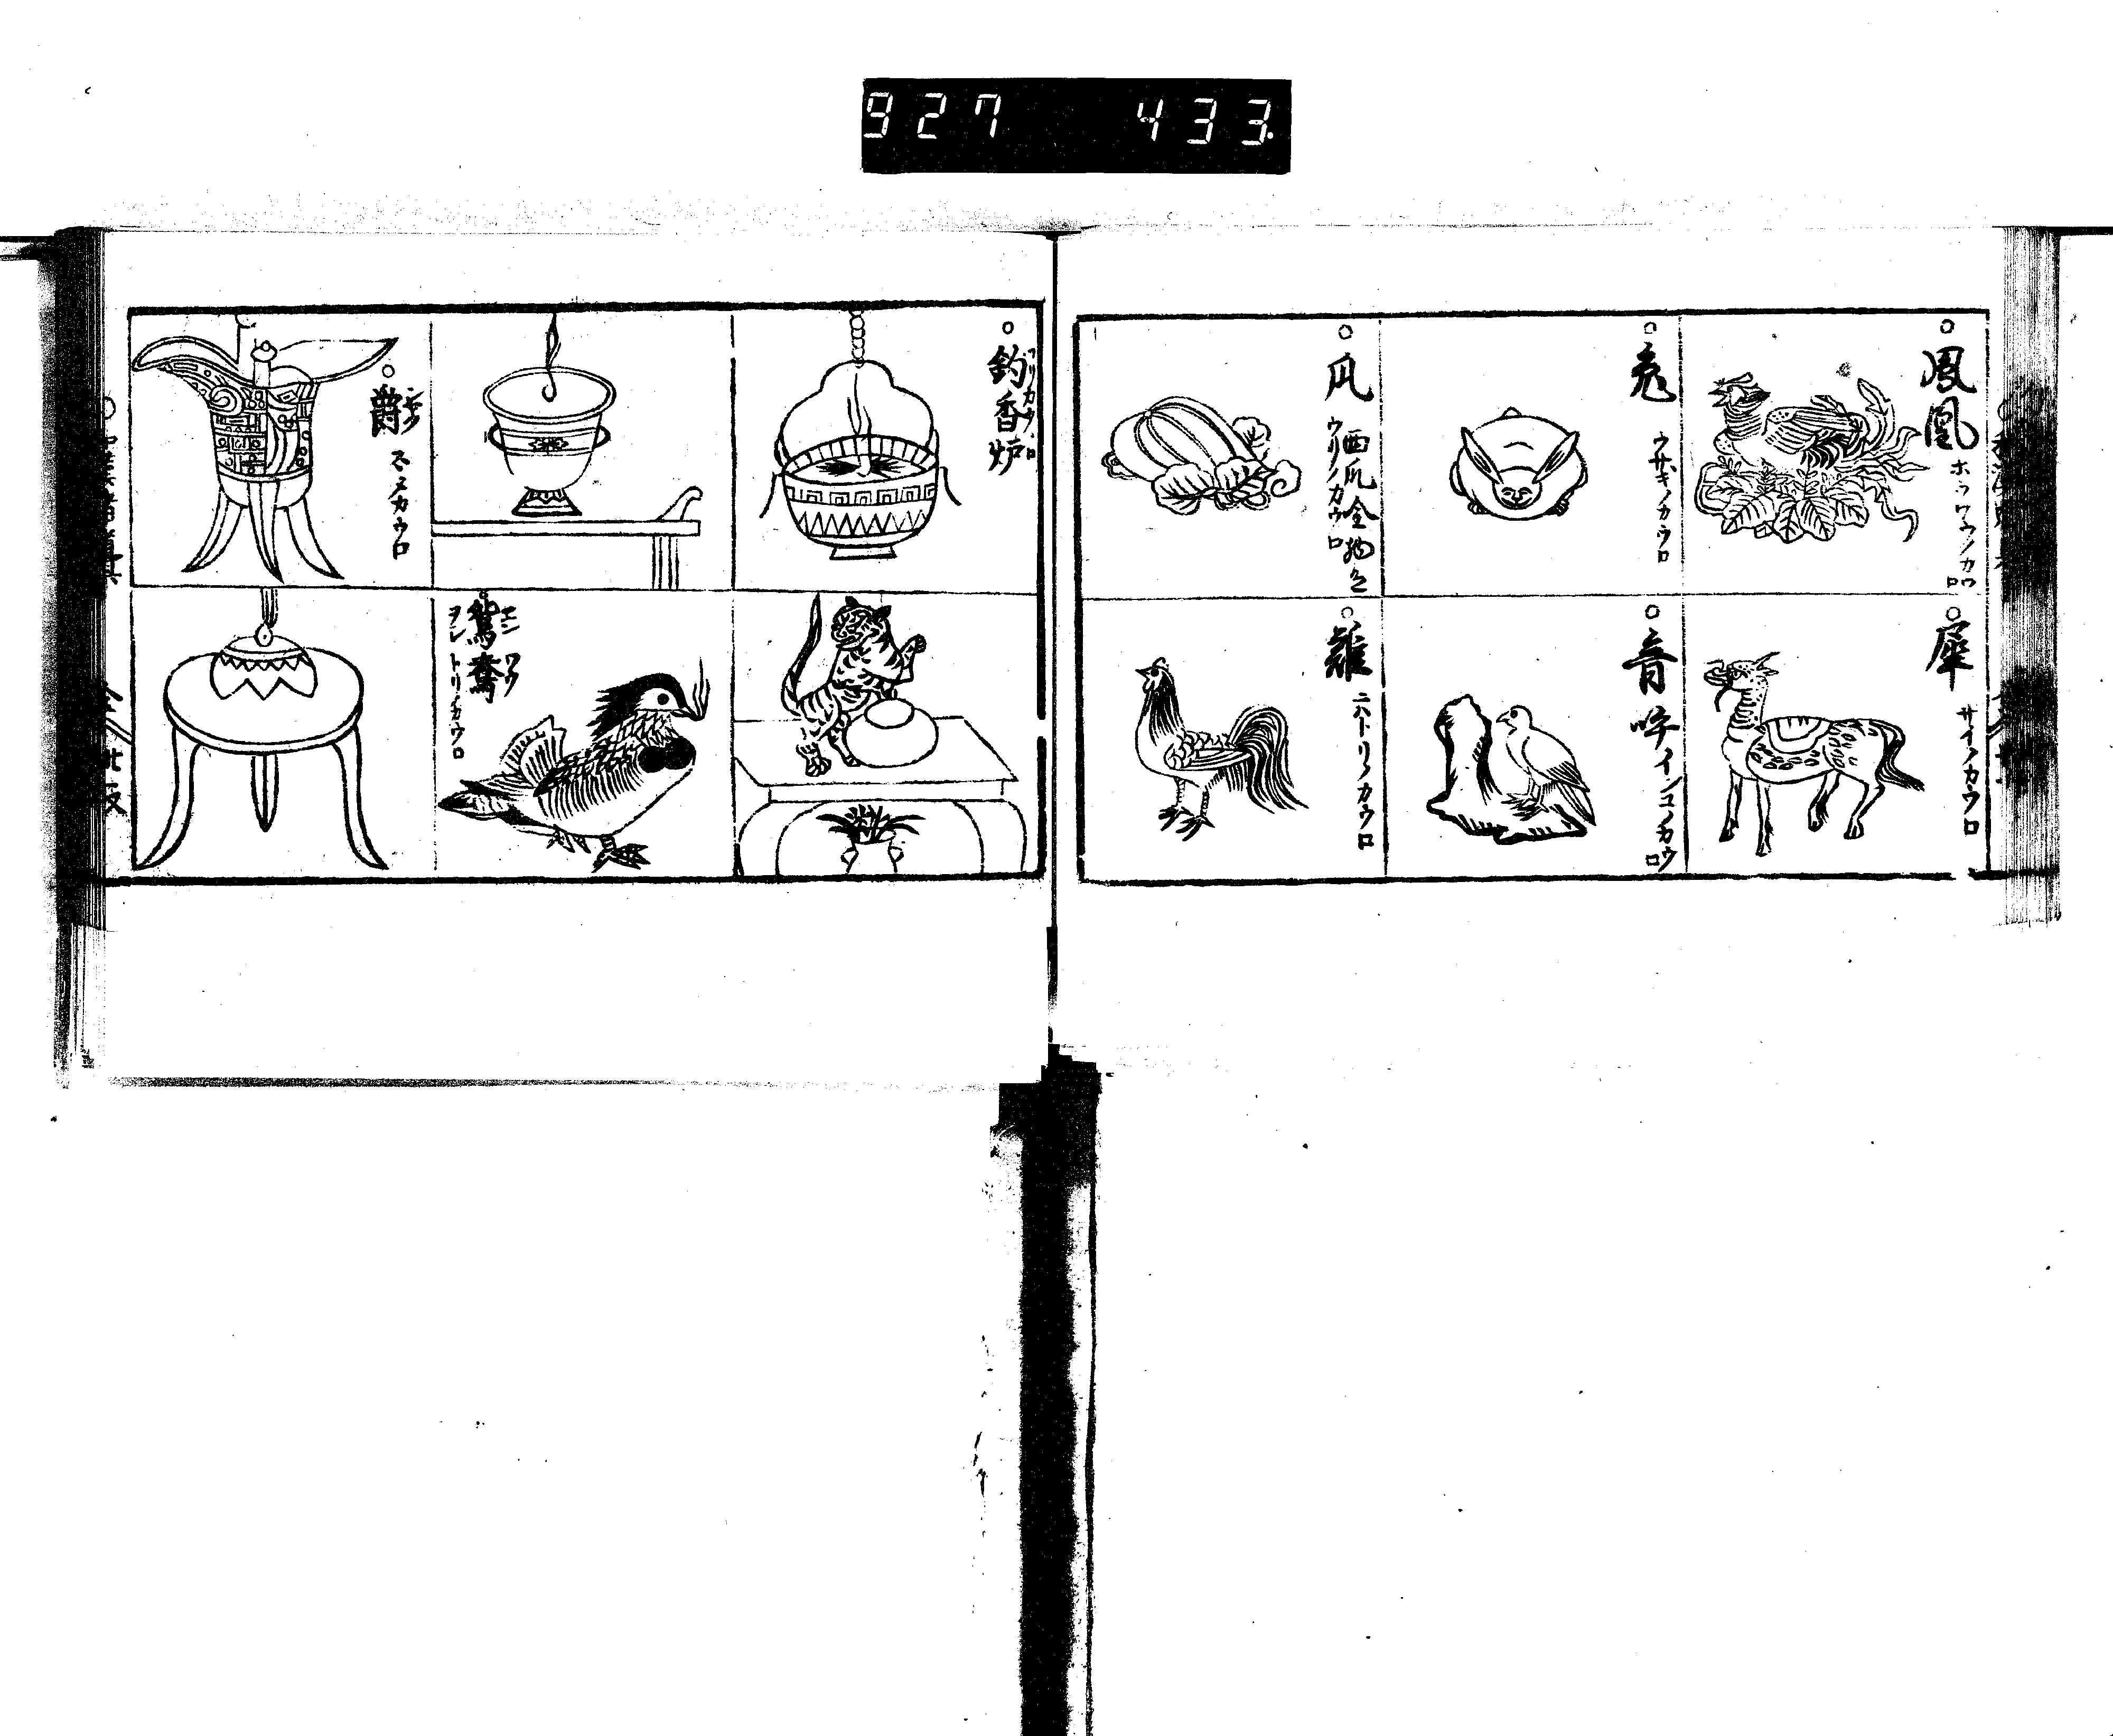 927 433
○鳳凰 ホウワウノカウロ
○兎 ウサギノカウロ
○瓜 ウリノカウロ
○犀 サイノカウロ
○音呼 インコノカウロ
○雞 ニハトリノカウロ
○釣香炉 ツリカウロ
○爵 シヤク
○鴛鴦 エンワウ
ヲシトリノカウロ